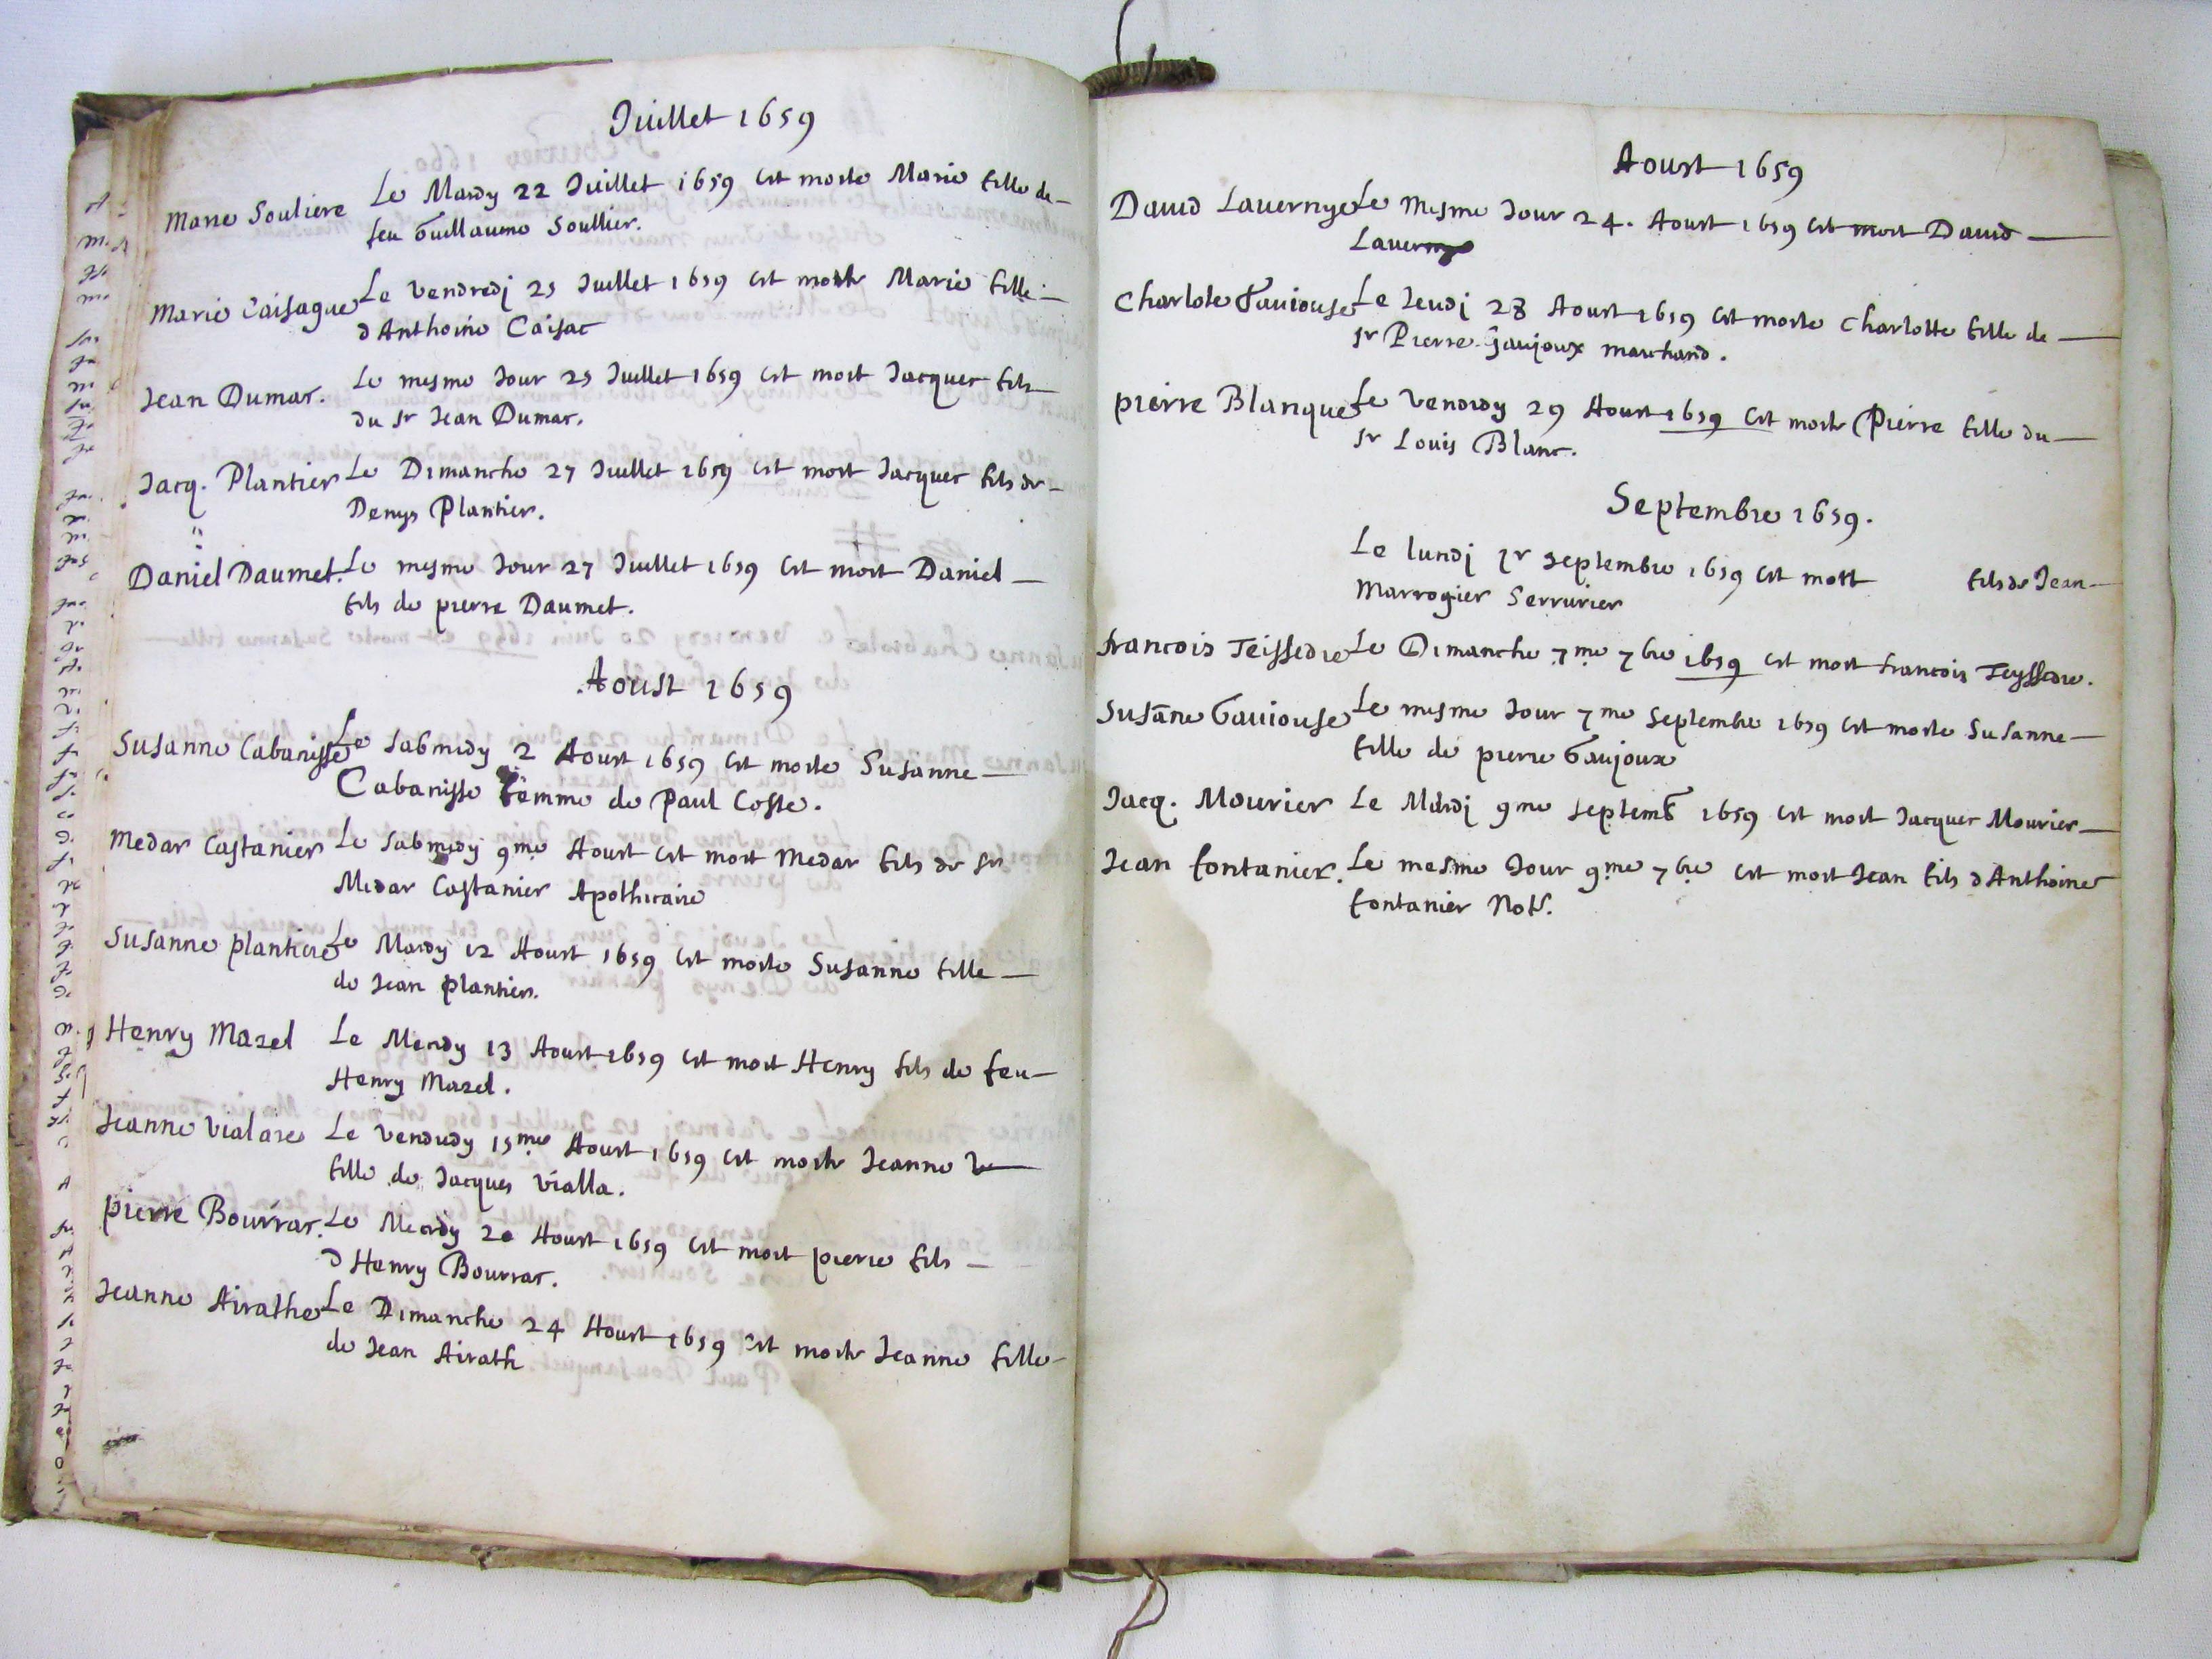 Juillet 1659
Marie Souliere Le Mardy 22 Juillet 1659 est morte Marie fille de
feu Guillaume Soullier.
Marie Caisague Le Vendredj 25 Juillet 1659 est morte Marie fille
d Anthoine Caisac
Jean Dumas. Le mesme Jour 25 Juillet 1659 est mort Jacques fils
du sr Jean Dumas.
Jacq. Plantier Le Dimanche 27 Juillet 1659 est mort Jacques fils de
Denys Plantier.
Daniel Daumet. Le mesme Jour 27 Juillet 1659 est mort Daniel
fils de pierre Daumet.
Aoust 1659
Susanne Cabanisse Le Sabmedy 2 Aoust 1659 est morte Susanne
Cabanisse femme de Paul Coste.
Medar Castanier Le Sabmedy 9me Aoust est mort Medar fils de sr
Medar Castanier Apothicaire
Susanne plantiere Le Mardy 12 Aoust 1659 est morte Susanne fille
de Jean plantier.
Henry Mazel Le Mercdy 13 Aoust 1659 est mort Henry fils de feu
Henry Mazel.
Jeanne Vialare Le Vendredy 15me Aoust 1659 est morte Jeanne
fille de Jacques Vialla.
pierre Bourras. Le Mercdy 20 Aoust 1659 est mort pierre fils
d Henry Bourras.
Jeanne Airathe Le Dimanche 24 Aoust 1659 est morte Jeanne fille
de Jean Airath
Aoust 1659
David Lavernge Le Mesme Jour 24. Aoust 1659 est mort David
Laverny
Charlote Gauiouse Le Jeudj 28 Aoust 1659 est morte Charlotte fille de
sr Pierre Gaujoux marchand.
pierre Blanque Le Vendredy 29 Aoust 1659 est morte Pierre fille du
sr Louis Blanc.
Septembre 1659.
Le lundj 1r septembre 1659 est mort fils de Jean
Marrogier Serrurier
francois Teissedre Le Dimanche 7me 7bre 1659 est mort francois Teyssedre.
Susane Gauiouse Le mesme Jour 7me Septembre 1659 est morte Susanne
fille de pierre Gaujoux
Jacq. Mourier Le Mardj 9me septemb 1659 est mort Jacques Mourier
Jean fontanier. Le mesme Jour 9me 7bre est mort Jean fils d Anthoine
fontanier Notr.